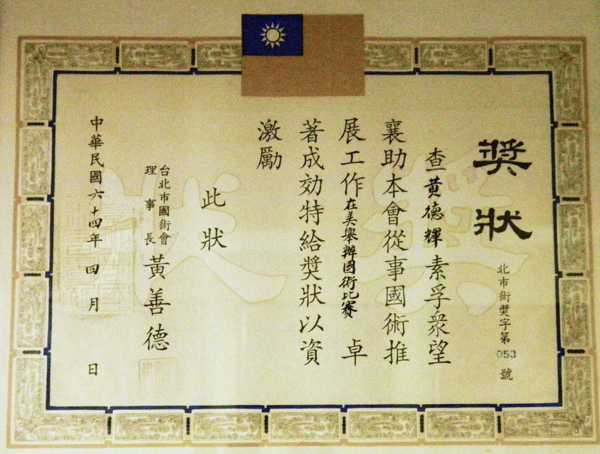 獎狀
北市術獎字第053號
查黃德輝素孚眾望
襄助本會從事國術推
展工作在美舉辦國術比賽卓
著成効特給獎狀以資
激勵
此狀
台北市國術會
理事長黃善德
中華民國六十四年四月日